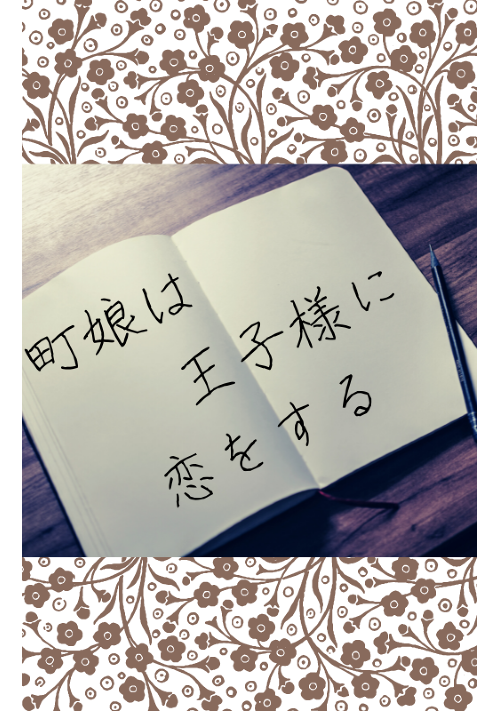 町娘は
王子様に
恋をする